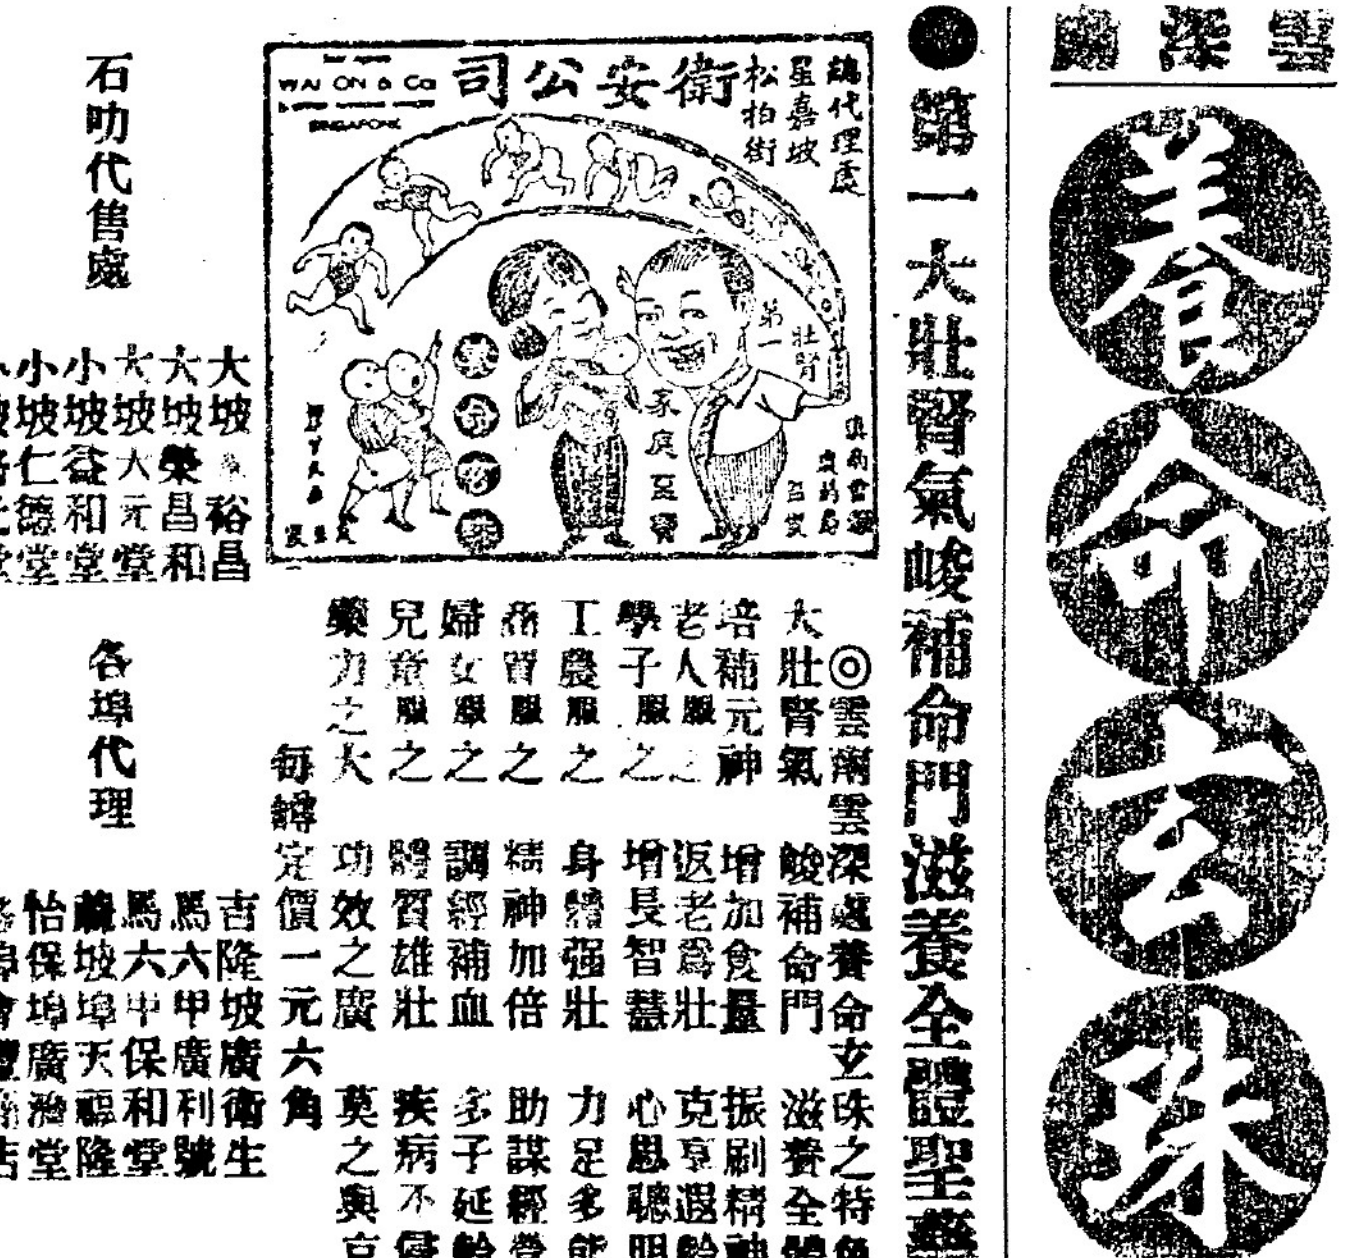 雲深處
養命玄珠
第一大壯腎氣峻補命門滋養全體聖藥
總代理處
星嘉坡
松柏街
衛安公司
WAI ON & Co
SINGAPORE
第一
壯腎
家庭至寶
◎雲南雲深處養命玄珠之特
大壯腎氣 峻補命門 滋養全體
培補元神 增加食量 振刷精神
老人服之 返老爲壯 克享遐齡
學子服之 增長智慧 心思聰明
工農服之 身體强壯 力足多能
商賈服之 精神加倍 助謀經營
婦女服之 調經補血 多子延齡
兒童服之 體質雄壯 疾病不侵
藥力之大 功效之廣 莫之與京
每罇定價一元六角
石叻代售處
大坡 裕昌
大坡榮昌和
大坡大元堂
小坡益和堂
小坡仁德堂
各埠代理
吉隆坡廣衛生
馬六甲廣利號
馬六甲保和堂
坡埠天福隆
怡保埠廣濟堂